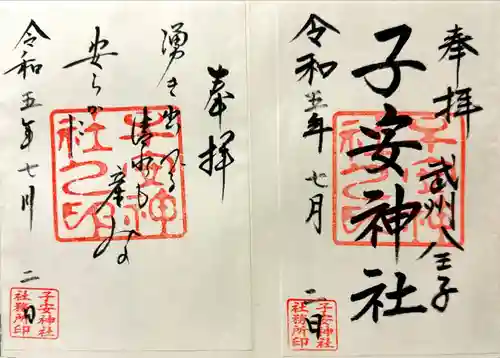 奉拝
武州八王子
子安神社
令和五年七月
二日
子安神社之印
子安神社
社務所印
奉拝
湧き出る
清水も
産みも
安らかに
令和五年七月
二日
子安神社之印
子安神社
社務所印